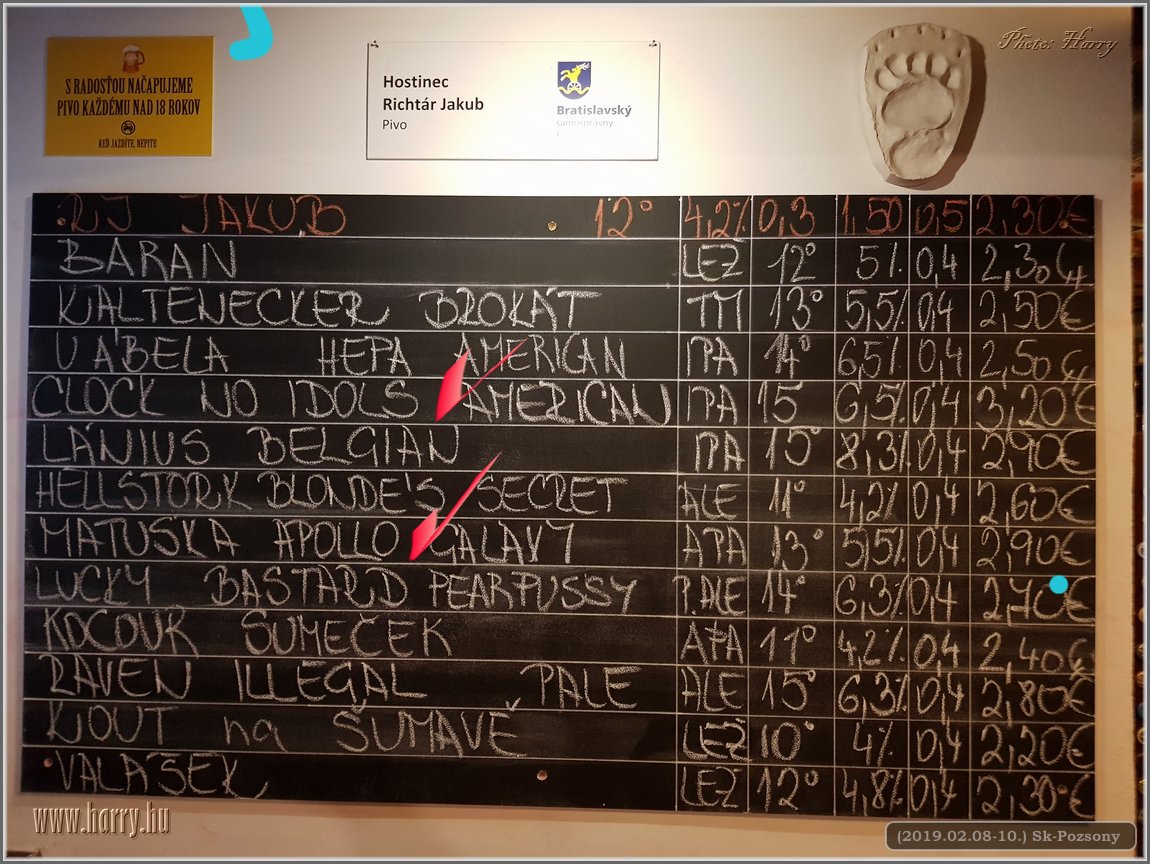 Photo: Harry
S RADOSŤOU NAČAPUJEME
PIVO KAŽDÉMU NAD 18 ROKOV
KEĎ JAZDÍTE, NEPITE
Hostinec
Richtár Jakub
Pivo
Bratislavský
samosprávny
RJ JAKUB 12° 4,2% 0,3 1,50 0,5 2,30€
BARAN LEŽ 12° 5% 0,4 2,30€
KALTENECKER BROKÁT TM 13° 5,5% 0,4 2,50€
U ÁBELA HEPA AMERICAN IPA 14° 6,5% 0,4 2,50€
CLOCK NO IDOLS AMERICAN IPA 15° 6,5% 0,4 3,20€
LANIUS BELGIAN IPA 15° 8,3% 0,4 2,90€
HELLSTORK BLONDE'S SECRET ALE 11° 4,2% 0,4 2,60€
MATUŠKA APOLLO GALAXY APA 13° 5,5% 0,4 2,90€
LUCKY BASTARD PEARPUSSY P.ALE 14° 6,3% 0,4 2,70€
KOCOUR ŠUMEČEK APA 11° 4,2% 0,4 2,40€
RAVEN ILLEGAL PALE ALE 15° 6,3% 0,4 2,80€
KOUT na ŠUMAVĚ LEŽ 10° 4% 0,4 2,20€
VALÁŠEK LEŽ 12° 4,8% 0,4 2,30€
www.harry.hu
(2019.02.08-10.) Sk-Pozsony